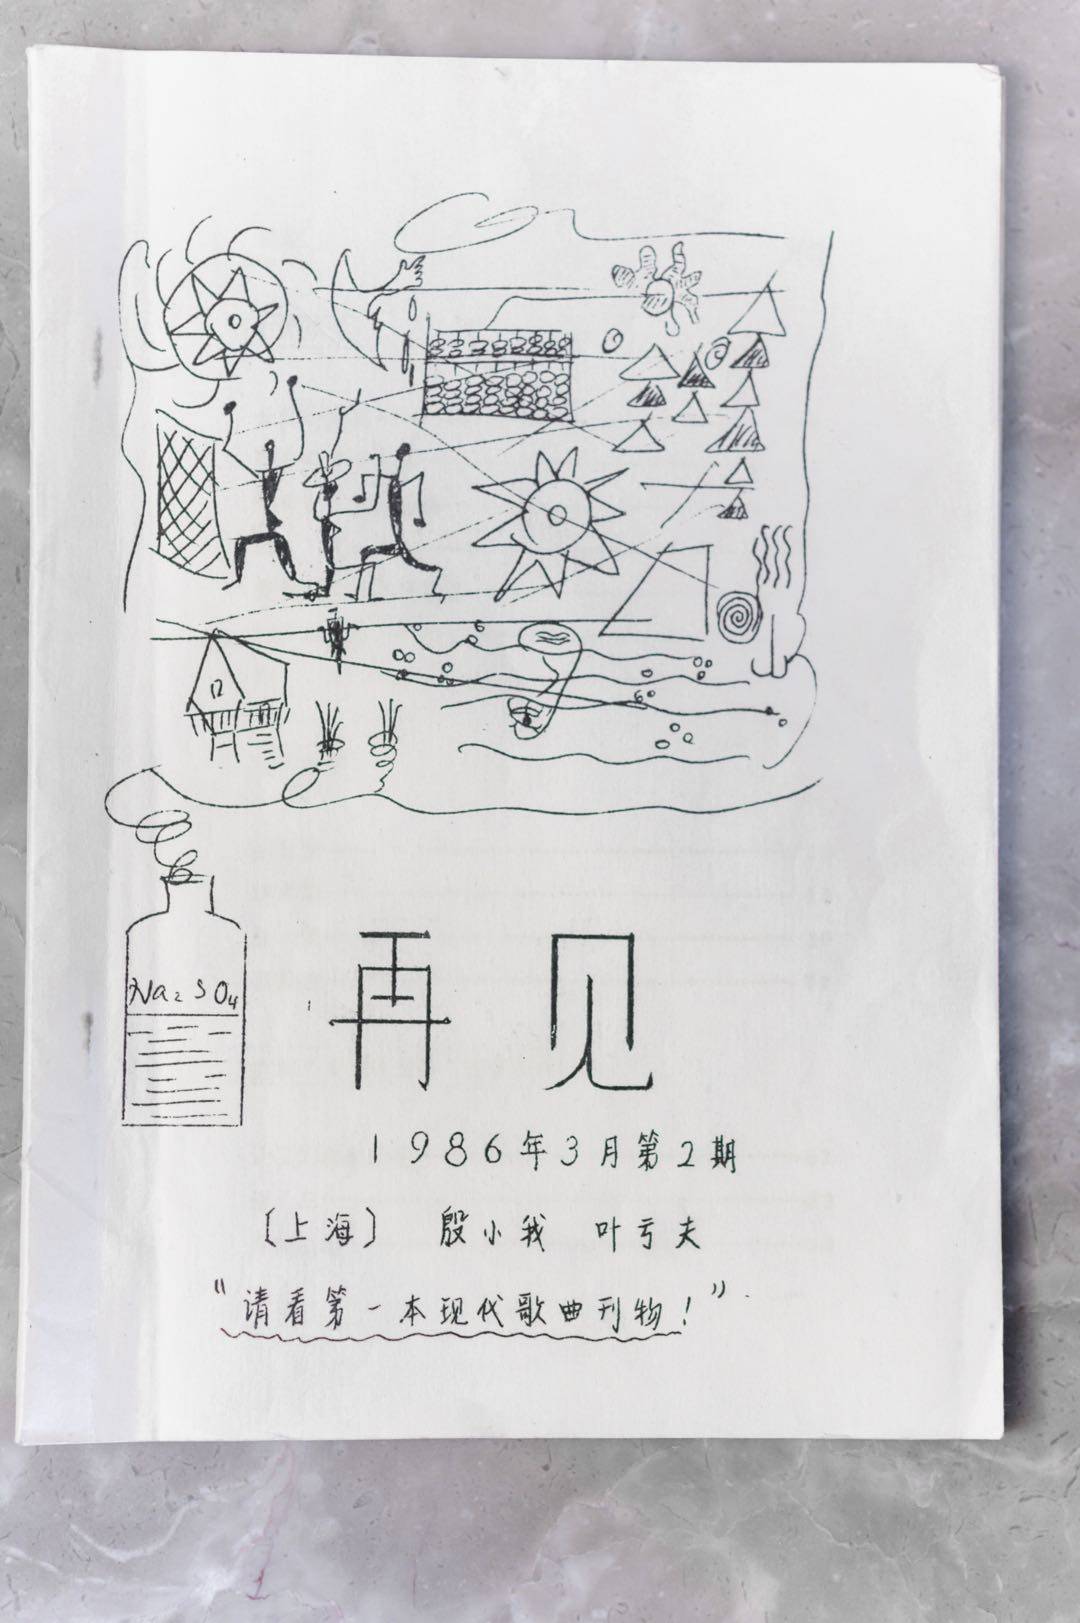 Na₂SO₄
再见
1986年3月第2期
〔上海〕 殷小我 叶亏夫
“请看第一本现代歌曲刊物！”